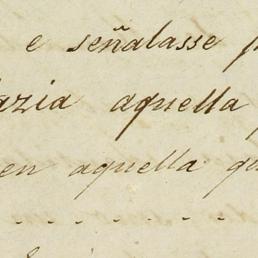 e señalasse p
azia aquella
en aquella qu
. . . . . . . .